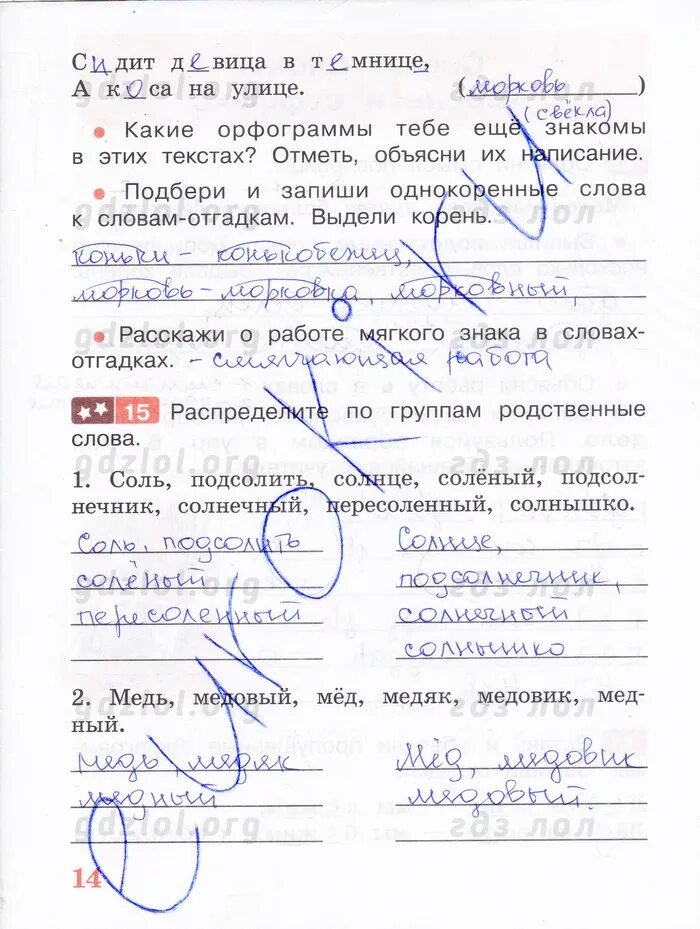 Сидит девица в темнице,
А коса на улице. (морковь)
(свёкла)
• Какие орфограммы тебе ещё знакомы
в этих текстах? Отметь, объясни их написание.
• Подбери и запиши однокоренные слова
к словам-отгадкам. Выдели корень.
коньки - конькобежец,
морковь - морковка, морковный,
• Расскажи о работе мягкого знака в словах-
отгадках. - смягчающая работа
15 Распределите по группам родственные
слова.
1. Соль, подсолить, солнце, солёный, подсол-
нечник, солнечный, пересоленный, солнышко.
Соль, подсолить Солнце,
солёный подсолнечник,
пересоленный солнечный
солнышко
2. Медь, медовый, мёд, медяк, медовик, мед-
ный.
медь, медяк Мёд медовик
медный медовый.
14
gdzlol.org гдз лол